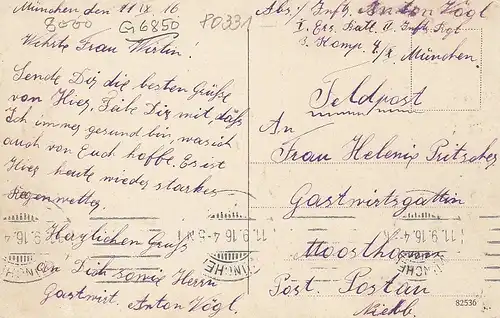 München den 11 IX 16
3000 G6850 P0331
Wehrte Frau Wirtin!
Sende Dir die besten Grüße
von Hier, Teile Dir mit, daß
Ich immer gesund bin, was ich
auch von Euch hoffe. Es ist
Hier heute wieder starkes
Regenwetter.
Herzlichen Gruß
an Dich sowie Herrn
Gastwirt. Anton Vögl.
Abs. Inftr. Anton Vögl
I. Ers. Batl. Inftr. Rgt
Komp. München.
Feldpost
An
Frau Helenie
Gastwirtsgattin
Moosthann
Post. Postau
Niedb.
11.9.16 4-5 N
MÜNCHEN
82536